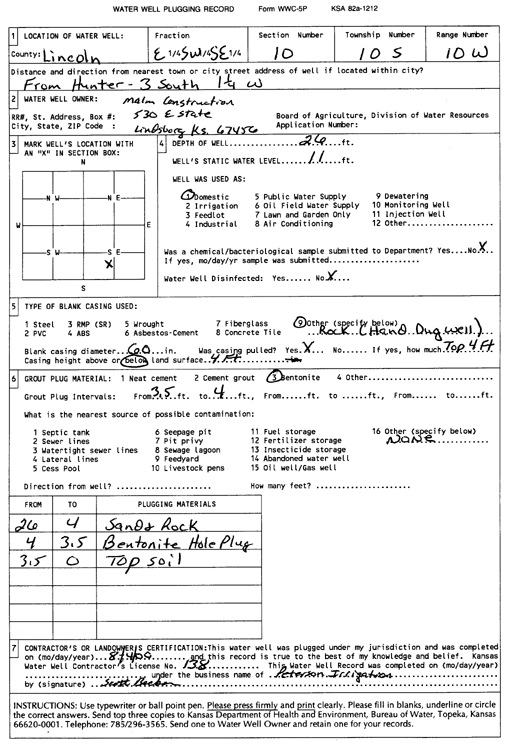 WATER WELL PLUGGING RECORD Form WWC-5P KSA 82a-1212
1 LOCATION OF WATER WELL: Fraction Section Number Township Number Range Number
County: Lincoln E 1/4 SW 1/4 SE 1/4 10 10 S 10 W
Distance and direction from nearest town or city street address of well if located within city?
From Hunter - 3 South 1¼ W
2 WATER WELL OWNER: Malm Construction
RR#, St. Address, Box #: 530 E State Board of Agriculture, Division of Water Resources
City, State, ZIP Code : Lindsborg Ks. 67456 Application Number:
3 MARK WELL'S LOCATION WITH AN "X" IN SECTION BOX:
N
N W N E
W E
S W S E
X
S
4 DEPTH OF WELL....26....ft.
WELL'S STATIC WATER LEVEL....11....ft.
WELL WAS USED AS:
1 Domestic 5 Public Water Supply 9 Dewatering
2 Irrigation 6 Oil Field Water Supply 10 Monitoring Well
3 Feedlot 7 Lawn and Garden Only 11 Injection Well
4 Industrial 8 Air Conditioning 12 Other................
Was a chemical/bacteriological sample submitted to Department? Yes....No..X
If yes, mo/day/yr sample was submitted....................
Water Well Disinfected: Yes...... No.X....
5 TYPE OF BLANK CASING USED:
1 Steel 3 RMP (SR) 5 Wrought 7 Fiberglass 9 Other (specify below)
2 PVC 4 ABS 6 Asbestos-Cement 8 Concrete Tile ..Rock (Hand Dug well)
Blank casing diameter...60...in. Was casing pulled? Yes.X... No...... If yes, how much Top 4 Ft
Casing height above or below land surface..4 Ft
6 GROUT PLUG MATERIAL: 1 Neat cement 2 Cement grout 3 Bentonite 4 Other..............
Grout Plug Intervals: From 3.5 ft. to..4...ft., From.....ft. to .....ft., From...... to......ft.
What is the nearest source of possible contamination:
1 Septic tank 6 Seepage pit 11 Fuel storage 16 Other (specify below)
2 Sewer lines 7 Pit privy 12 Fertilizer storage NONE
3 Watertight sewer lines 8 Sewage lagoon 13 Insecticide storage
4 Lateral lines 9 Feedyard 14 Abandoned water well
5 Cess Pool 10 Livestock pens 15 Oil well/Gas well
Direction from well? .................... How many feet? ...................
FROM TO PLUGGING MATERIALS
26 4 Sand & Rock
4 3.5 Bentonite Hole Plug
3.5 0 Top soil
7 CONTRACTOR'S OR LANDOWNER'S CERTIFICATION: This water well was plugged under my jurisdiction and was completed
on (mo/day/year)............and this record is true to the best of my knowledge and belief. Kansas
Water Well Contractor's License No. 138 This Water Well Record was completed on (mo/day/year)
under the business name of Peterson Irrigation
by (signature)
INSTRUCTIONS: Use typewriter or ball point pen. Please press firmly and print clearly. Please fill in blanks, underline or circle
the correct answers. Send top three copies to Kansas Department of Health and Environment, Bureau of Water, Topeka, Kansas
66620-0001. Telephone: 785/296-3565. Send one to Water Well Owner and retain one for your records.